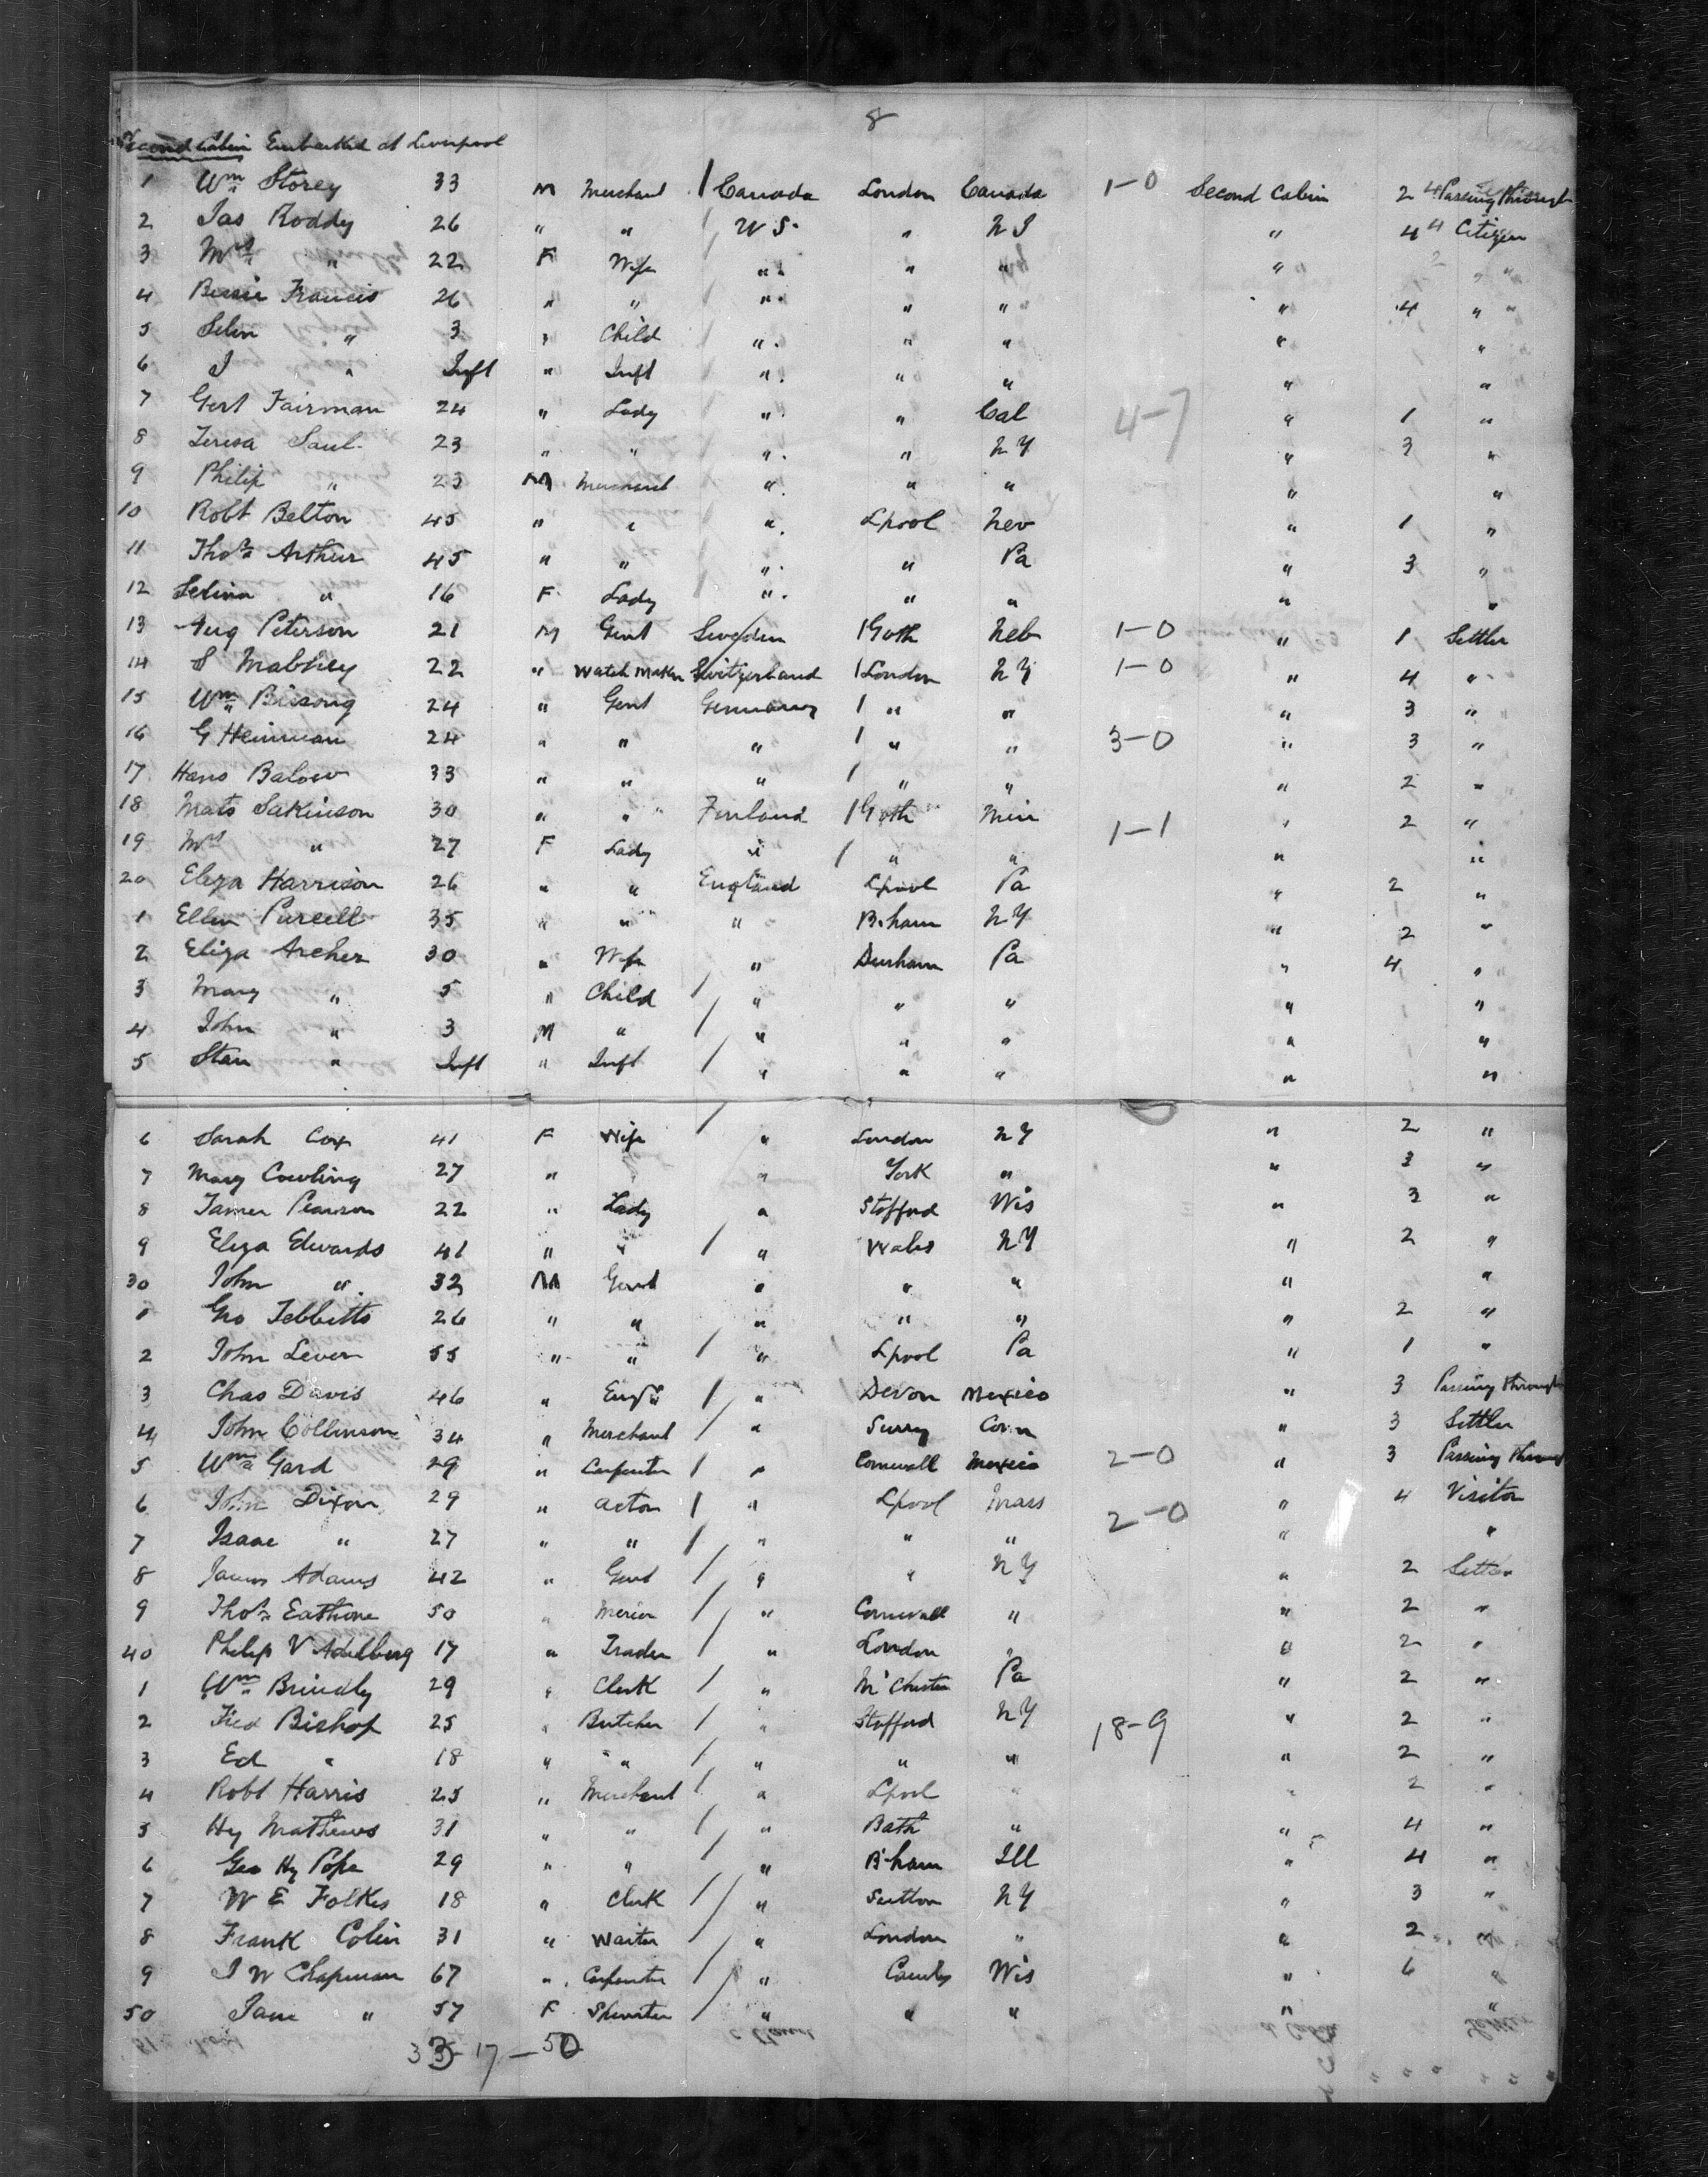 8
Second Cabin Embarked at Liverpool
1 Wm Storey 33 M Merchant / Canada London Canada 1-0 Second Cabin 2 4 Passing through
2 Jas Roddy 26 " " / U S. " N J " 4 4 Citizen
3 Mrs " 22 F Wife " " " " "
4 Bessie Francis 26 " " / " " " " 4 "
5 Selm " 3 " Child / " " " " "
6 J " Inft " Inft / " " " " "
7 Gert Fairman 24 " Lady / " " Cal 4-7 " 1 "
8 Teresa Saul 23 " " / " " N Y " 3 "
9 Philip " 23 M Merchant / " " " " "
10 Robt Belton 45 " " / " Lpool Nev " 1 "
11 Thos Arthur 45 " " / " " Pa " 3 "
12 Selina " 16 F Lady / " " " " "
13 Aug Peterson 21 M Gent Sweden / Goth Neb 1-0 " 1 Settler
14 S Mabhey 22 " Watch Maker Switzerland / London N Y 1-0 " 4 "
15 Wm Bissong 24 " Gent Germany / " " " 3 "
16 G Heinman 24 " " " / " " 3-0 " 3 "
17 Hans Balow 33 " " " / " " " 2 "
18 Mats Sakinson 30 " " Finland / Goth Min 1-1 " 2 "
19 Mrs " 27 F Lady " / " " " "
20 Eliza Harrison 26 " " England Lpool Pa " 2 "
1 Ellen Purcell 35 " " " B.ham N Y " 2 "
2 Eliza Archer 30 " Wife " Durham Pa " 4 "
3 Mary " 5 " Child / " " " " "
4 John " 3 M " / " " " " "
5 Stan " Inft " Inft / " " " " "
6 Sarah Cox 41 F Wife / " London N Y " 2 "
7 Mary Cowling 27 " " York " " 3 "
8 Tamer Pearson 22 " Lady " Stafford Wis " 3 "
9 Eliza Edwards 41 " " / " Wales N Y " 2 "
30 John " 32 M Gent " " " " "
1 Geo Tebbitts 26 " " " " " " 2 "
2 John Lever 55 " " / " Lpool Pa " 1 "
3 Chas Davis 46 " Engr / " Devon Mexico " 3 Passing through
4 John Collinson 34 " Merchant / " Surry Conn " 3 Settler
5 Wm Gard 29 " Carpenter / " Cornwall Mexico 2-0 " 3 Passing through
6 John Dixon 29 " Actor / " Lpool Mass 2-0 " 4 Visitor
7 Isaac " 27 " " / " " " " "
8 James Adams 42 " Gent / " " N Y " 2 Settler
9 Thos Eathorne 50 " / " Cornwall " " 2 "
40 Philip V Adelberg 17 " Trader / " London " " 2 "
1 Wm Brindly 29 " Clerk / " M'Chester Pa " 2 "
2 Fred Bishop 25 " Butcher / " Stafford N Y 18-9 " 2 "
3 Ed " 18 " " / " " " " 2 "
4 Robt Harris 25 " Merchant / " Lpool " " 2 "
5 Hy Mathews 31 " " / " Bath " " 4 "
6 Geo Hy Pope 29 " " / " B'ham Ill " 4 "
7 W E Folkes 18 " Clerk / " Sutton N Y " 3 "
8 Frank Colin 31 " Waiter / " London " " 2 "
9 J W Chapman 67 " Carpenter / " Wis " 6 "
50 Jane " 57 F / " " " " "
33-17-50